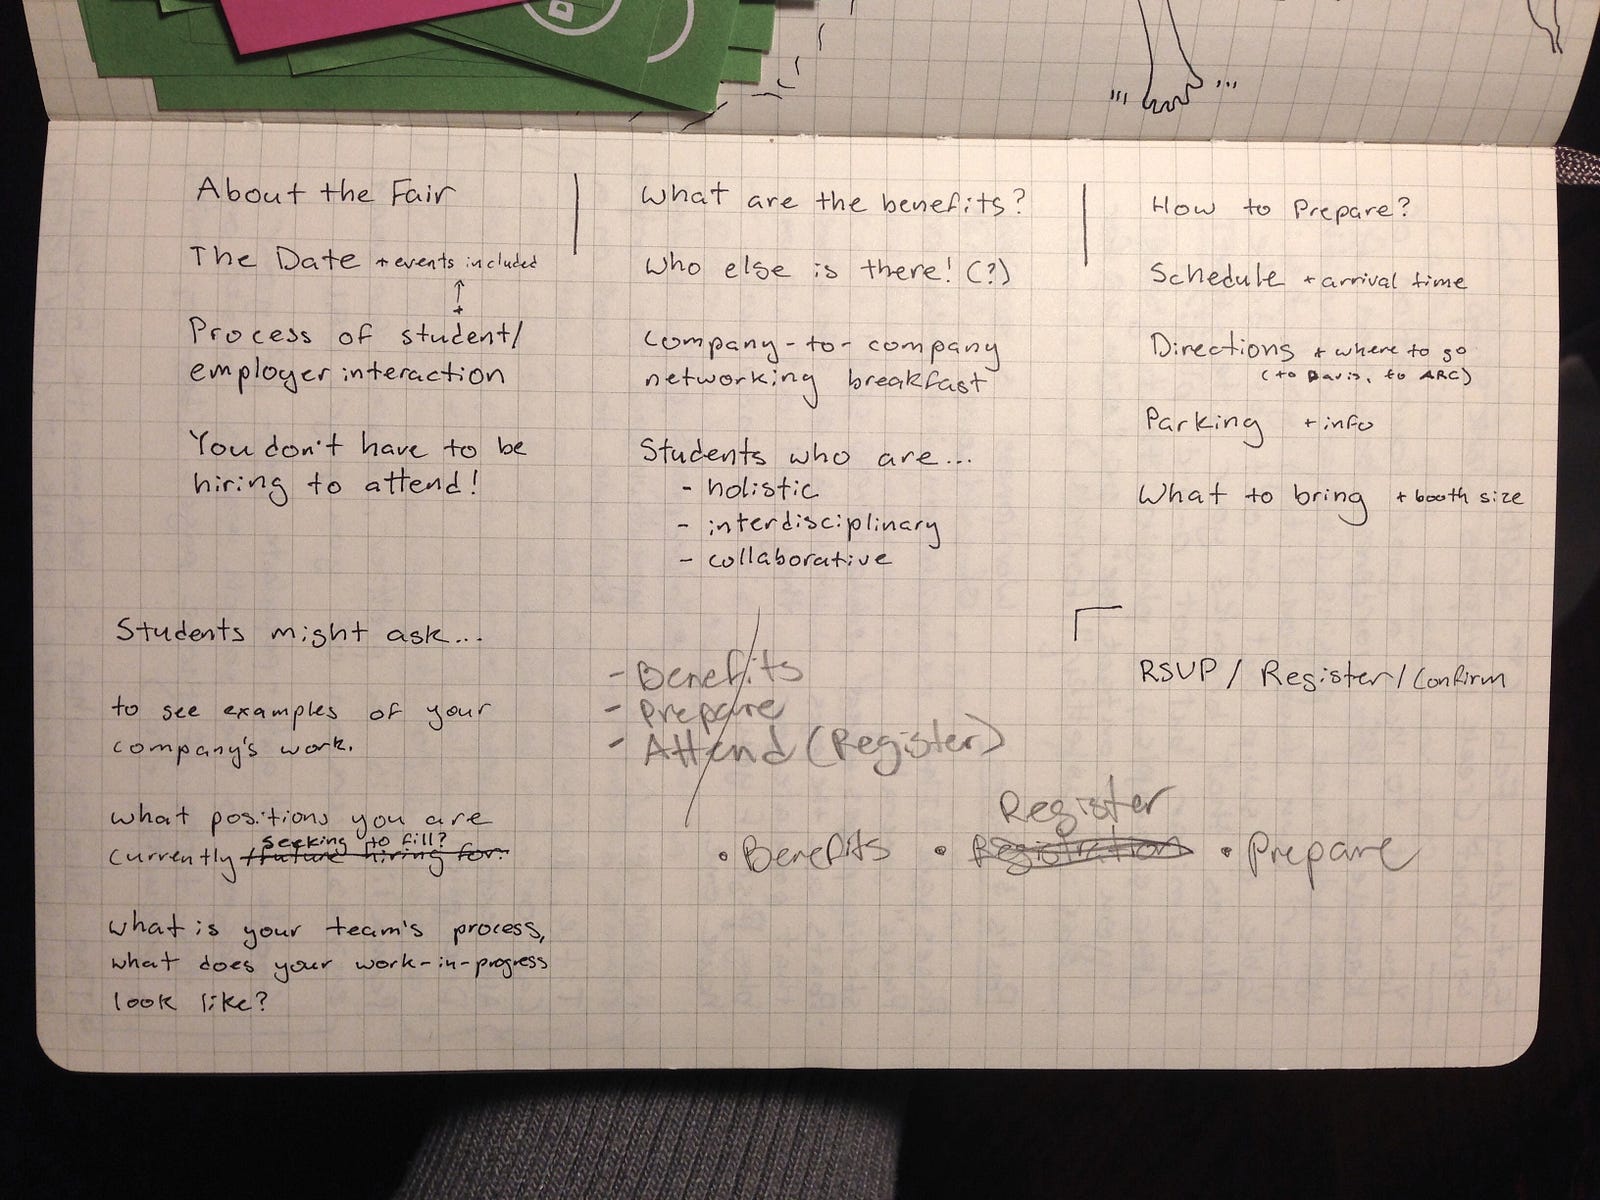 About the Fair
The Date + events included
+
Process of student/
employer interaction
You don't have to be
hiring to attend!
What are the benefits?
Who else is there! (?)
company-to-company
networking breakfast
Students who are...
- holistic
- interdisciplinary
- collaborative
How to Prepare?
Schedule + arrival time
Directions + where to go
(to Davis, to ARC)
Parking + info
What to bring + booth size
Students might ask...
to see examples of your
company's work.
what positions you are
seeking to fill?
currently /future hiring for.
what is your team's process,
what does your work-in-progress
look like?
- Benefits
- Prepare
- Attend (Register)
RSVP / Register / Confirm
Register
• Benefits • Registration • Prepare